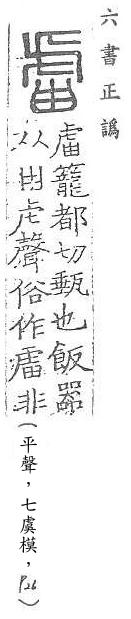 六書正譌
籠都切甀也飯器
从甾虍聲俗作非
(平聲,七虞模,P.26)